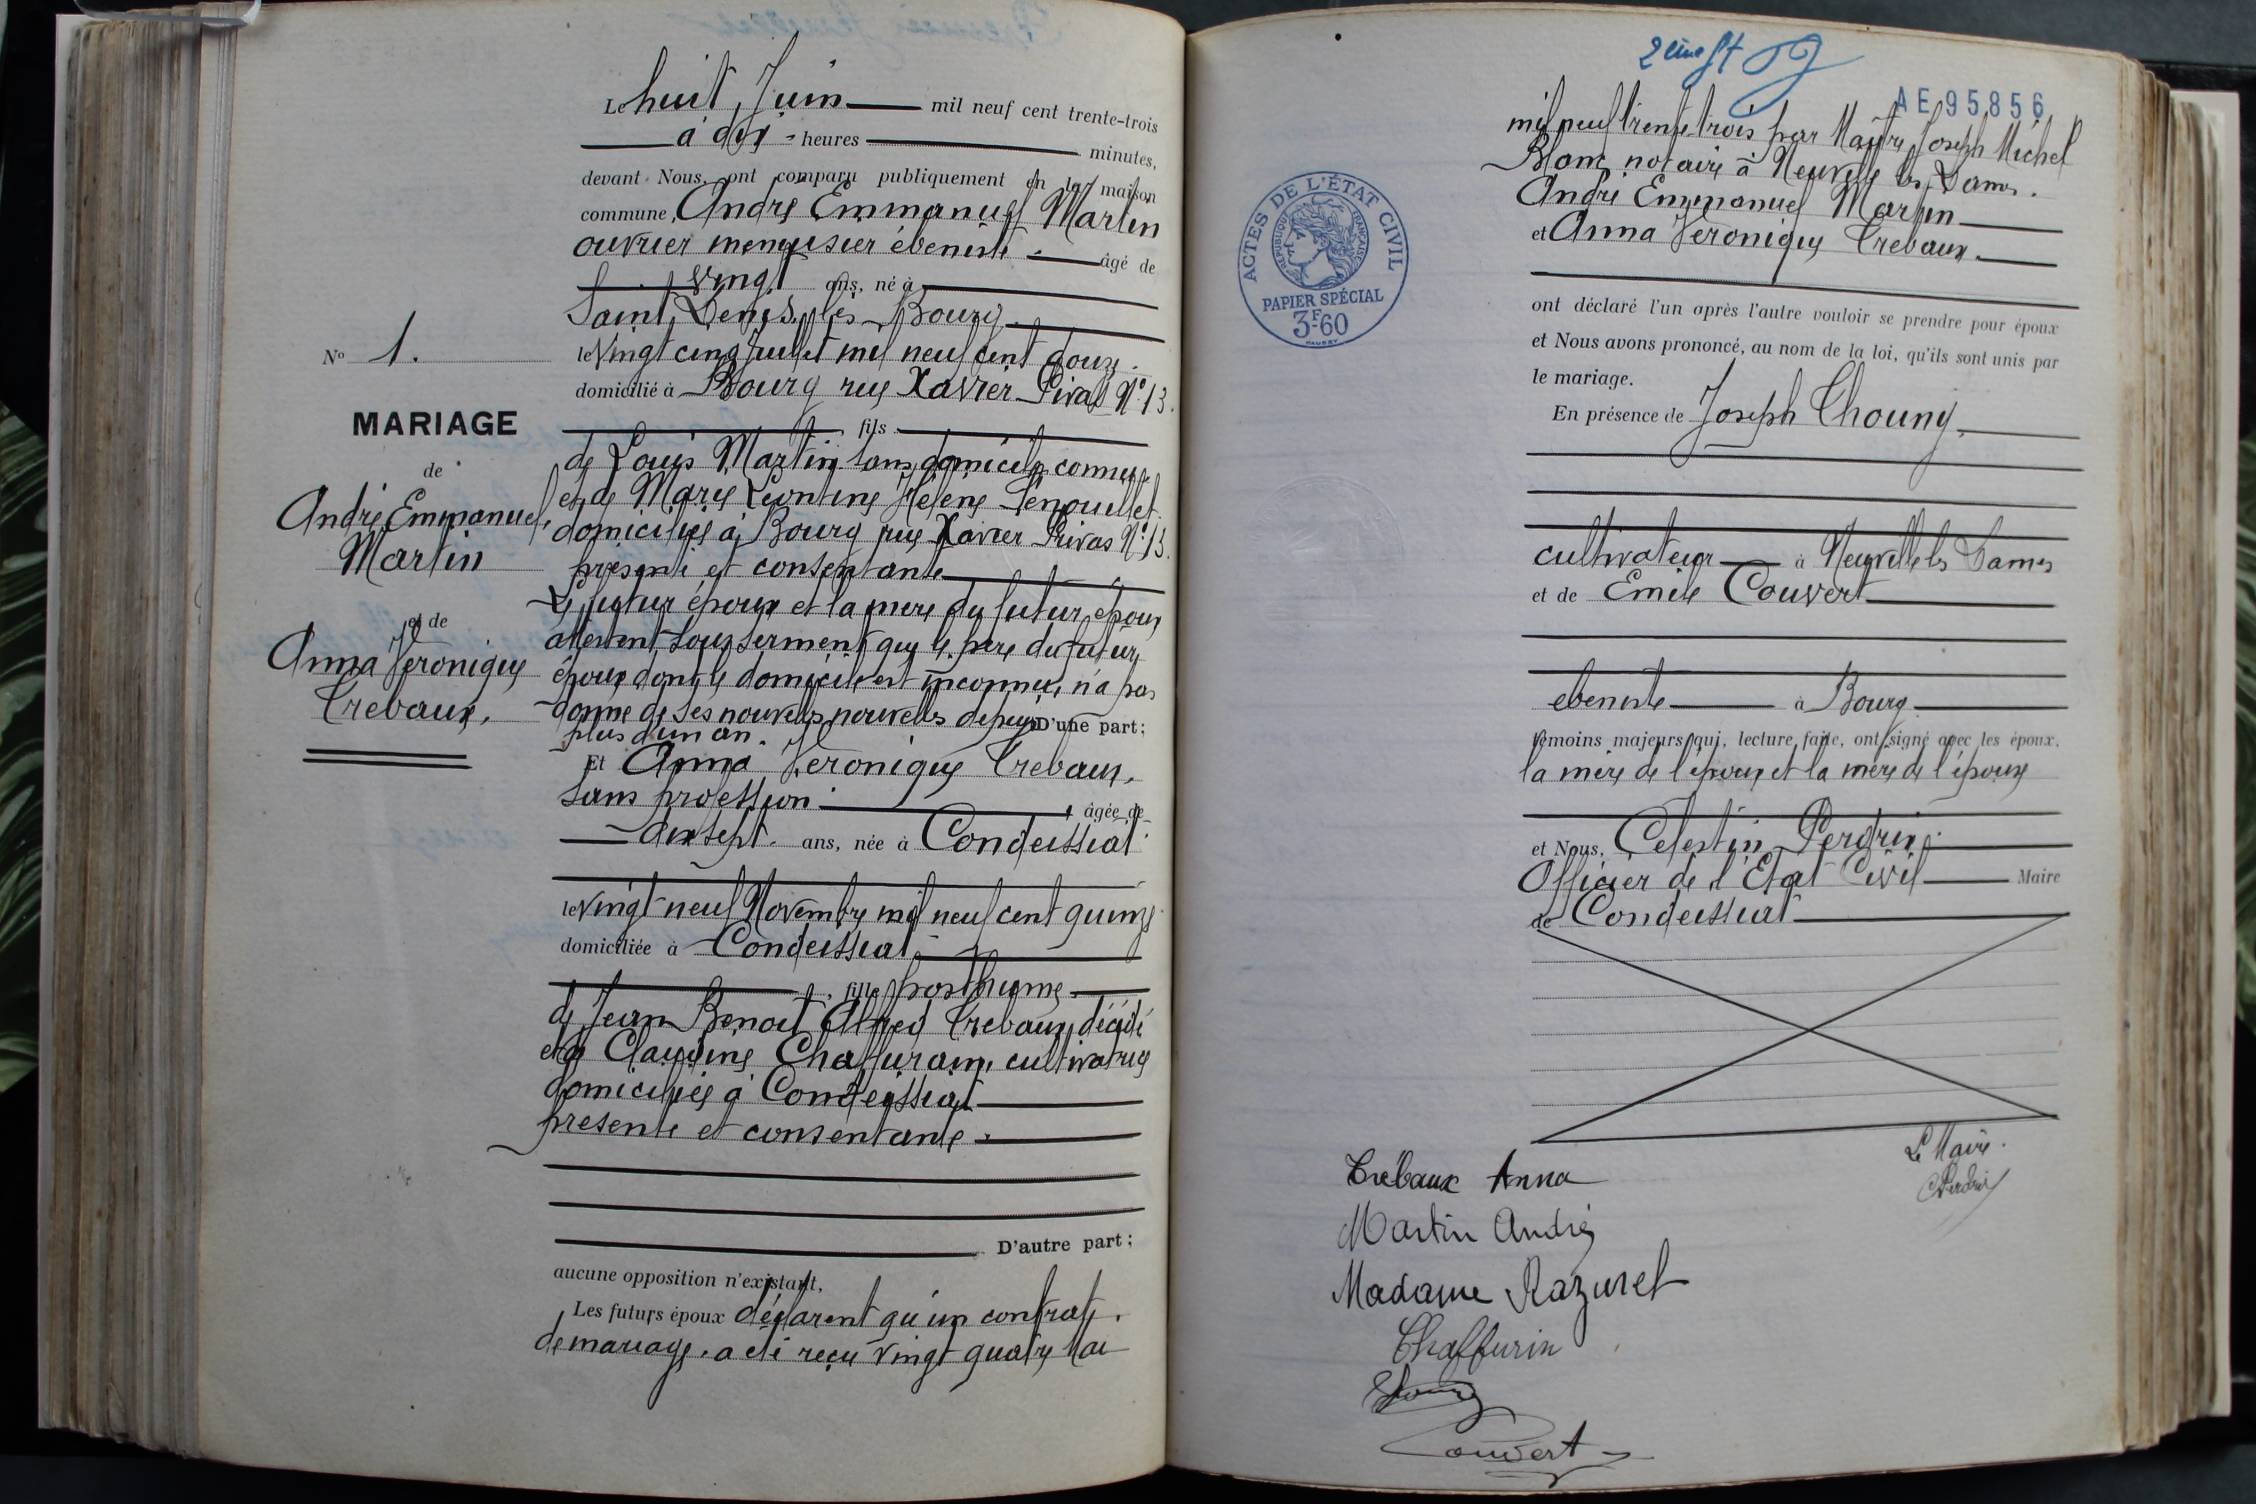 Le huit Juin mil neuf cent trente-trois
à dix heures minutes,
devant Nous, ont comparu publiquement en la maison
commune, André Emmanuel Martin
ouvrier menuisier ébeniste âgé de
vingt ans, né à
Saint Denis les Bourg
le vingt cinq juillet mil neuf cent douze.
domicilié à Bourg rue Xavier Privas N° 13.
fils
de Louis Martin sans domicile connu
et de Marie Léontine Hélène
domiciliée à Bourg rue Xavier Privas N° 13.
présente et consentante
Le futur époux et la mère du futur époux
attestent sous serment que le père du futur
époux dont le domicile est inconnu, n'a pas
donné de ses nouvelles nouvelles depuis D'une part;
plus d'un an.
Et Anna Veronique Trebaux,
sans profession âgée de
dix sept ans, née à Condeissiat
le vingt neuf Novembre mil neuf cent quinze
domiciliée à Condeissiat
fille posthume
de Jean Benoit Alfred Trebaux, décédé
et de Claudine Chaffurin, cultivatrice
domiciliée à Condeissiat
présente et consentante.
D'autre part;
aucune opposition n'existant,
Les futurs époux déclarent qu'un contrat
de mariage a été reçu vingt quatre Mai
N° 1.
MARIAGE
de
André Emmanuel
Martin
et de
Anna Veronique
Trebaux,
2ème ft
AE95856
mil neuf trente trois par Maître Joseph Michel
Blanc notaire à Neuville les Dames.
André Emmanuel Martin
et Anna Veronique Trebaux.
ACTES DE L'ÉTAT CIVIL
RÉPUBLIQUE FRANÇAISE
PAPIER SPÉCIAL
3F.60
ont déclaré l'un après l'autre vouloir se prendre pour époux
et Nous avons prononcé, au nom de la loi, qu'ils sont unis par
le mariage.
En présence de Joseph Chouny,
cultivateur à Neuville les Dames
et de Emile Couvert
ebeniste à Bourg
témoins majeurs qui, lecture faite, ont signé avec les époux,
la mère de l'époux et la mère de l'épouse
et Nous, Celestin Perdrix
Officier de l'Etat Civil Maire
de Condeissiat
Le Maire.
Perdrix
Trébaux Anna
Martin André
Madame Razurel
Chaffurin
Chouny
Couvert